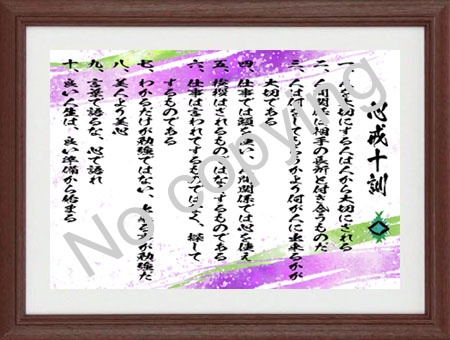 心戒十訓
一、人を大切にする人は人から大切にされる
二、人間関係は相手の長所と付き合うものだ
三、人は何をしてもらうかより何が人に出来るかが
大切である
四、仕事では頭を使い、人間関係では心を使え
五、挨拶はされるものではなくするものである
六、仕事は言われてするものではなく、探して
するものである
七、わかるだけが勉強ではない、できる事が勉強だ
八、美人より美心
九、言葉で語るな、心で語れ
十、良い人生は、良い準備から始まる
No copying